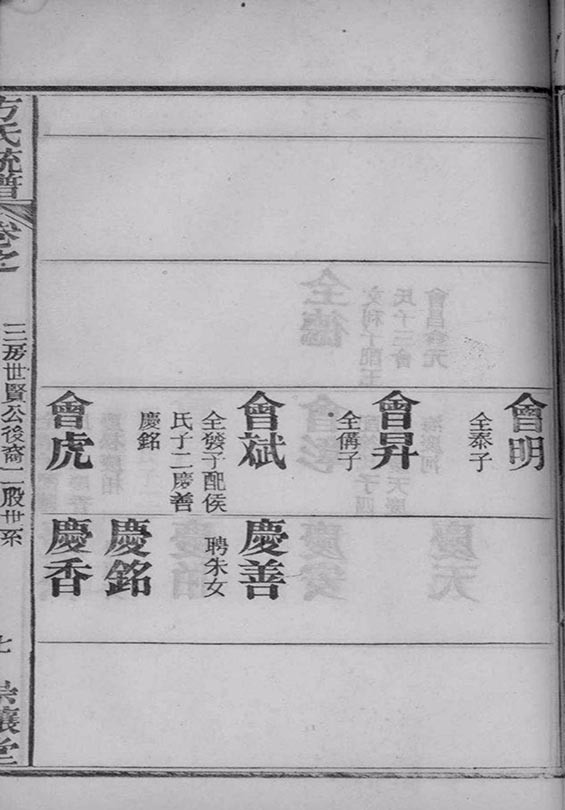 會明
全泰子
會昇
全儁子
會斌
全發子配侯
氏子二慶善
慶銘
會虎
慶善
聘朱女
慶銘
慶香
方氏統譜
卷之
三房世賢公後裔二股世系
七